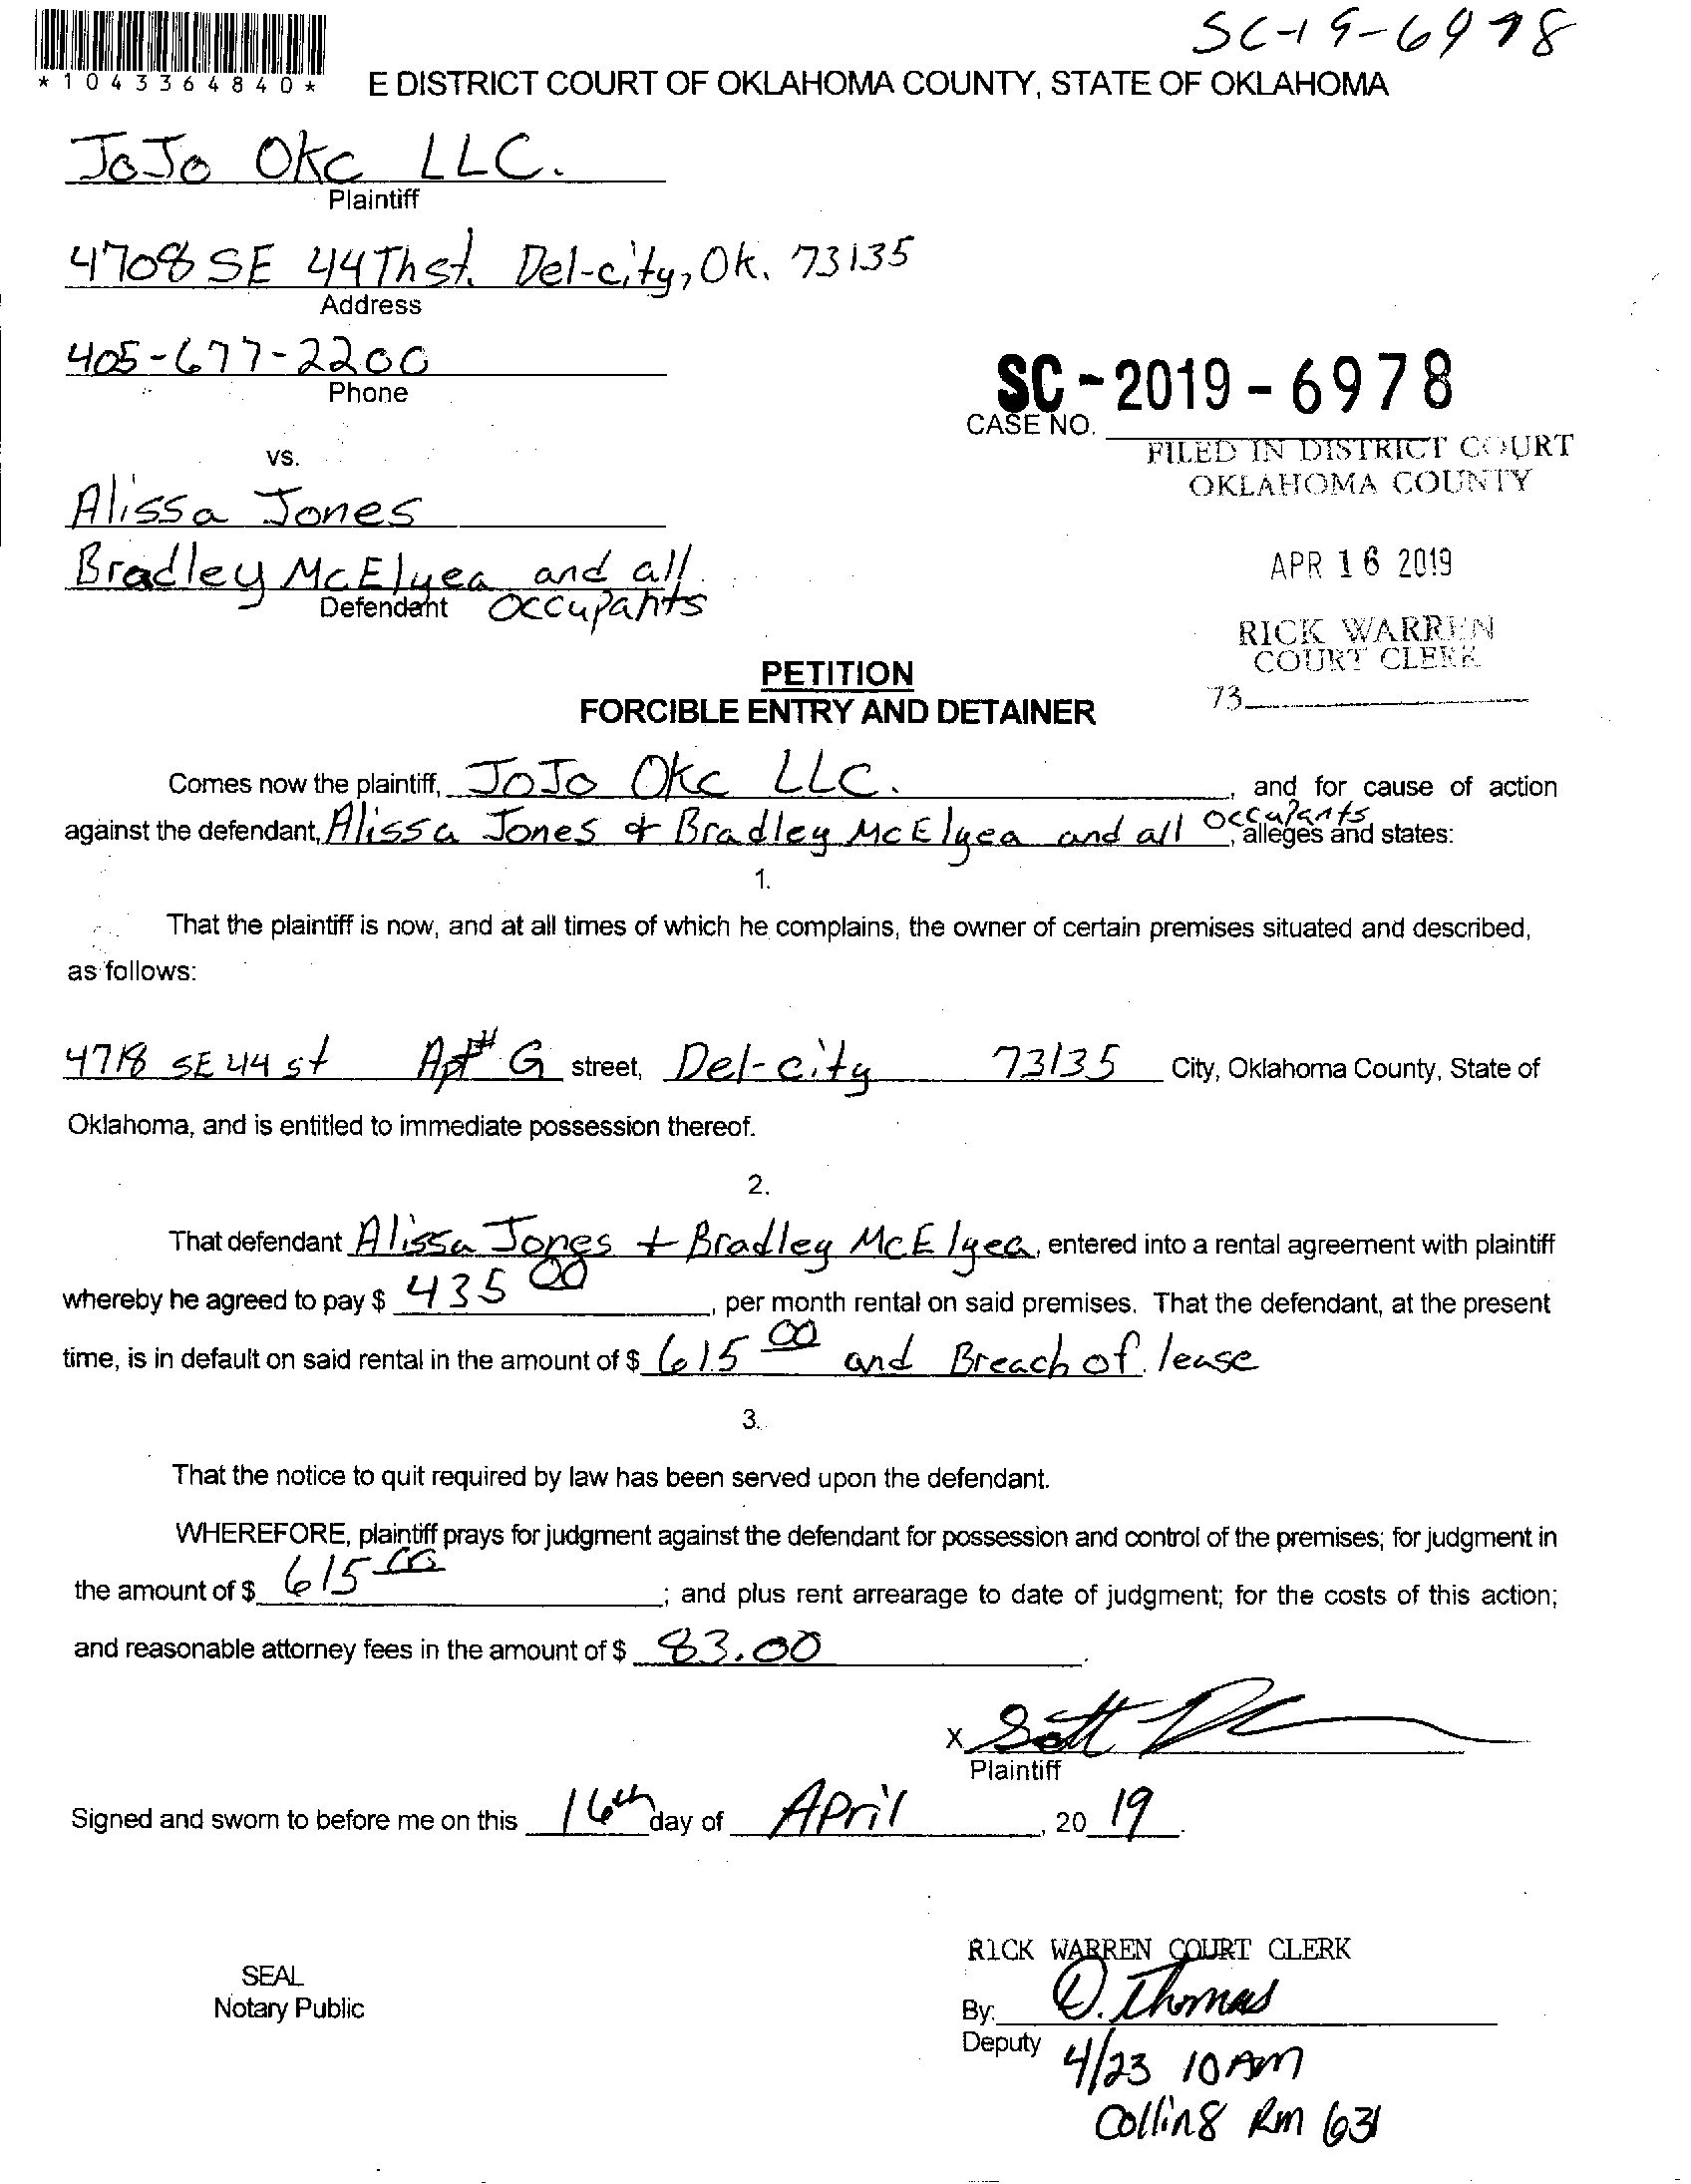 SC-19-6978
*1043364840*
E DISTRICT COURT OF OKLAHOMA COUNTY, STATE OF OKLAHOMA
JoJo OKC LLC.
Plaintiff
4708 SE 44Th st. Del-city, Ok. 73135
Address
405-677-2200
Phone
SC-2019-6978
CASE NO.
FILED IN DISTRICT COURT
OKLAHOMA COUNTY
vs.
Alissa Jones
Bradley McElyea and all
Defendant occupants
APR 16 2019
RICK WARREN
COURT CLERK
73
PETITION
FORCIBLE ENTRY AND DETAINER
Comes now the plaintiff, JoJo OKC LLC. , and for cause of action
against the defendant, Alissa Jones & Bradley McElyea and all occupants, alleges and states:
1.
That the plaintiff is now, and at all times of which he complains, the owner of certain premises situated and described,
as follows:
4718 SE 44 st Apt# G street, Del-city 73135 City, Oklahoma County, State of
Oklahoma, and is entitled to immediate possession thereof.
2.
That defendant Alissa Jones + Bradley McElyea, entered into a rental agreement with plaintiff
whereby he agreed to pay $ 435 00 , per month rental on said premises. That the defendant, at the present
time, is in default on said rental in the amount of $ 615 00 and Breach of lease
3.
That the notice to quit required by law has been served upon the defendant.
WHEREFORE, plaintiff prays for judgment against the defendant for possession and control of the premises; for judgment in
the amount of $ 615 00 ; and plus rent arrearage to date of judgment; for the costs of this action;
and reasonable attorney fees in the amount of $ 83.00 .
X Scott
Plaintiff
Signed and sworn to before me on this 16th day of April , 20 19 .
RICK WARREN COURT CLERK
SEAL
Notary Public
By: D. Thomas
Deputy
4/23 10 AM
Collins Rm 631